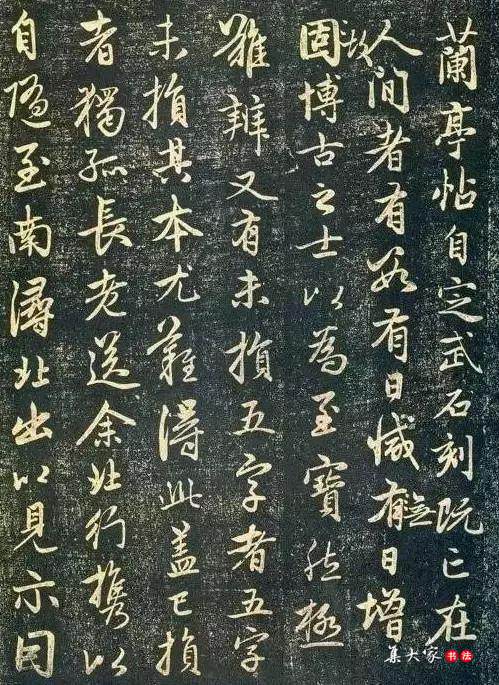 蘭亭帖自定武石刻既亡在
人間者有數有日減有無日增
固故博古之士以為至寶然極
難辨又有未損五字者五字
未損其本尤難得此蓋已損
者獨孤長老送余北行攜以
自隨至南潯北出以見示因
集大家书法